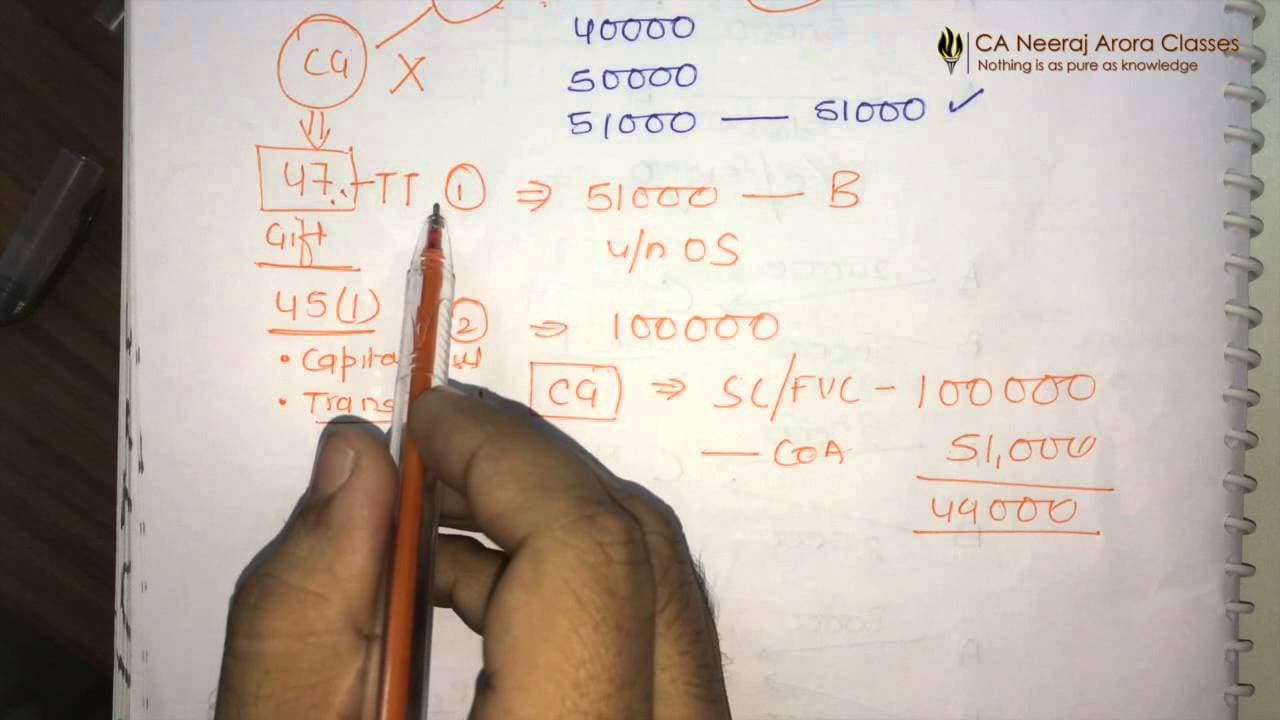 CA Neeraj Arora Classes
Nothing is as pure as knowledge
40000
50000
51000 — 51000 ✓
CG X
47. - TT ① ⇒ 51000 — B
Gift
u/n OS
45(1)
② ⇒ 100000
• Capita
CG ⇒ SC/FVC - 100000
• Trans
— COA 51,000
49000